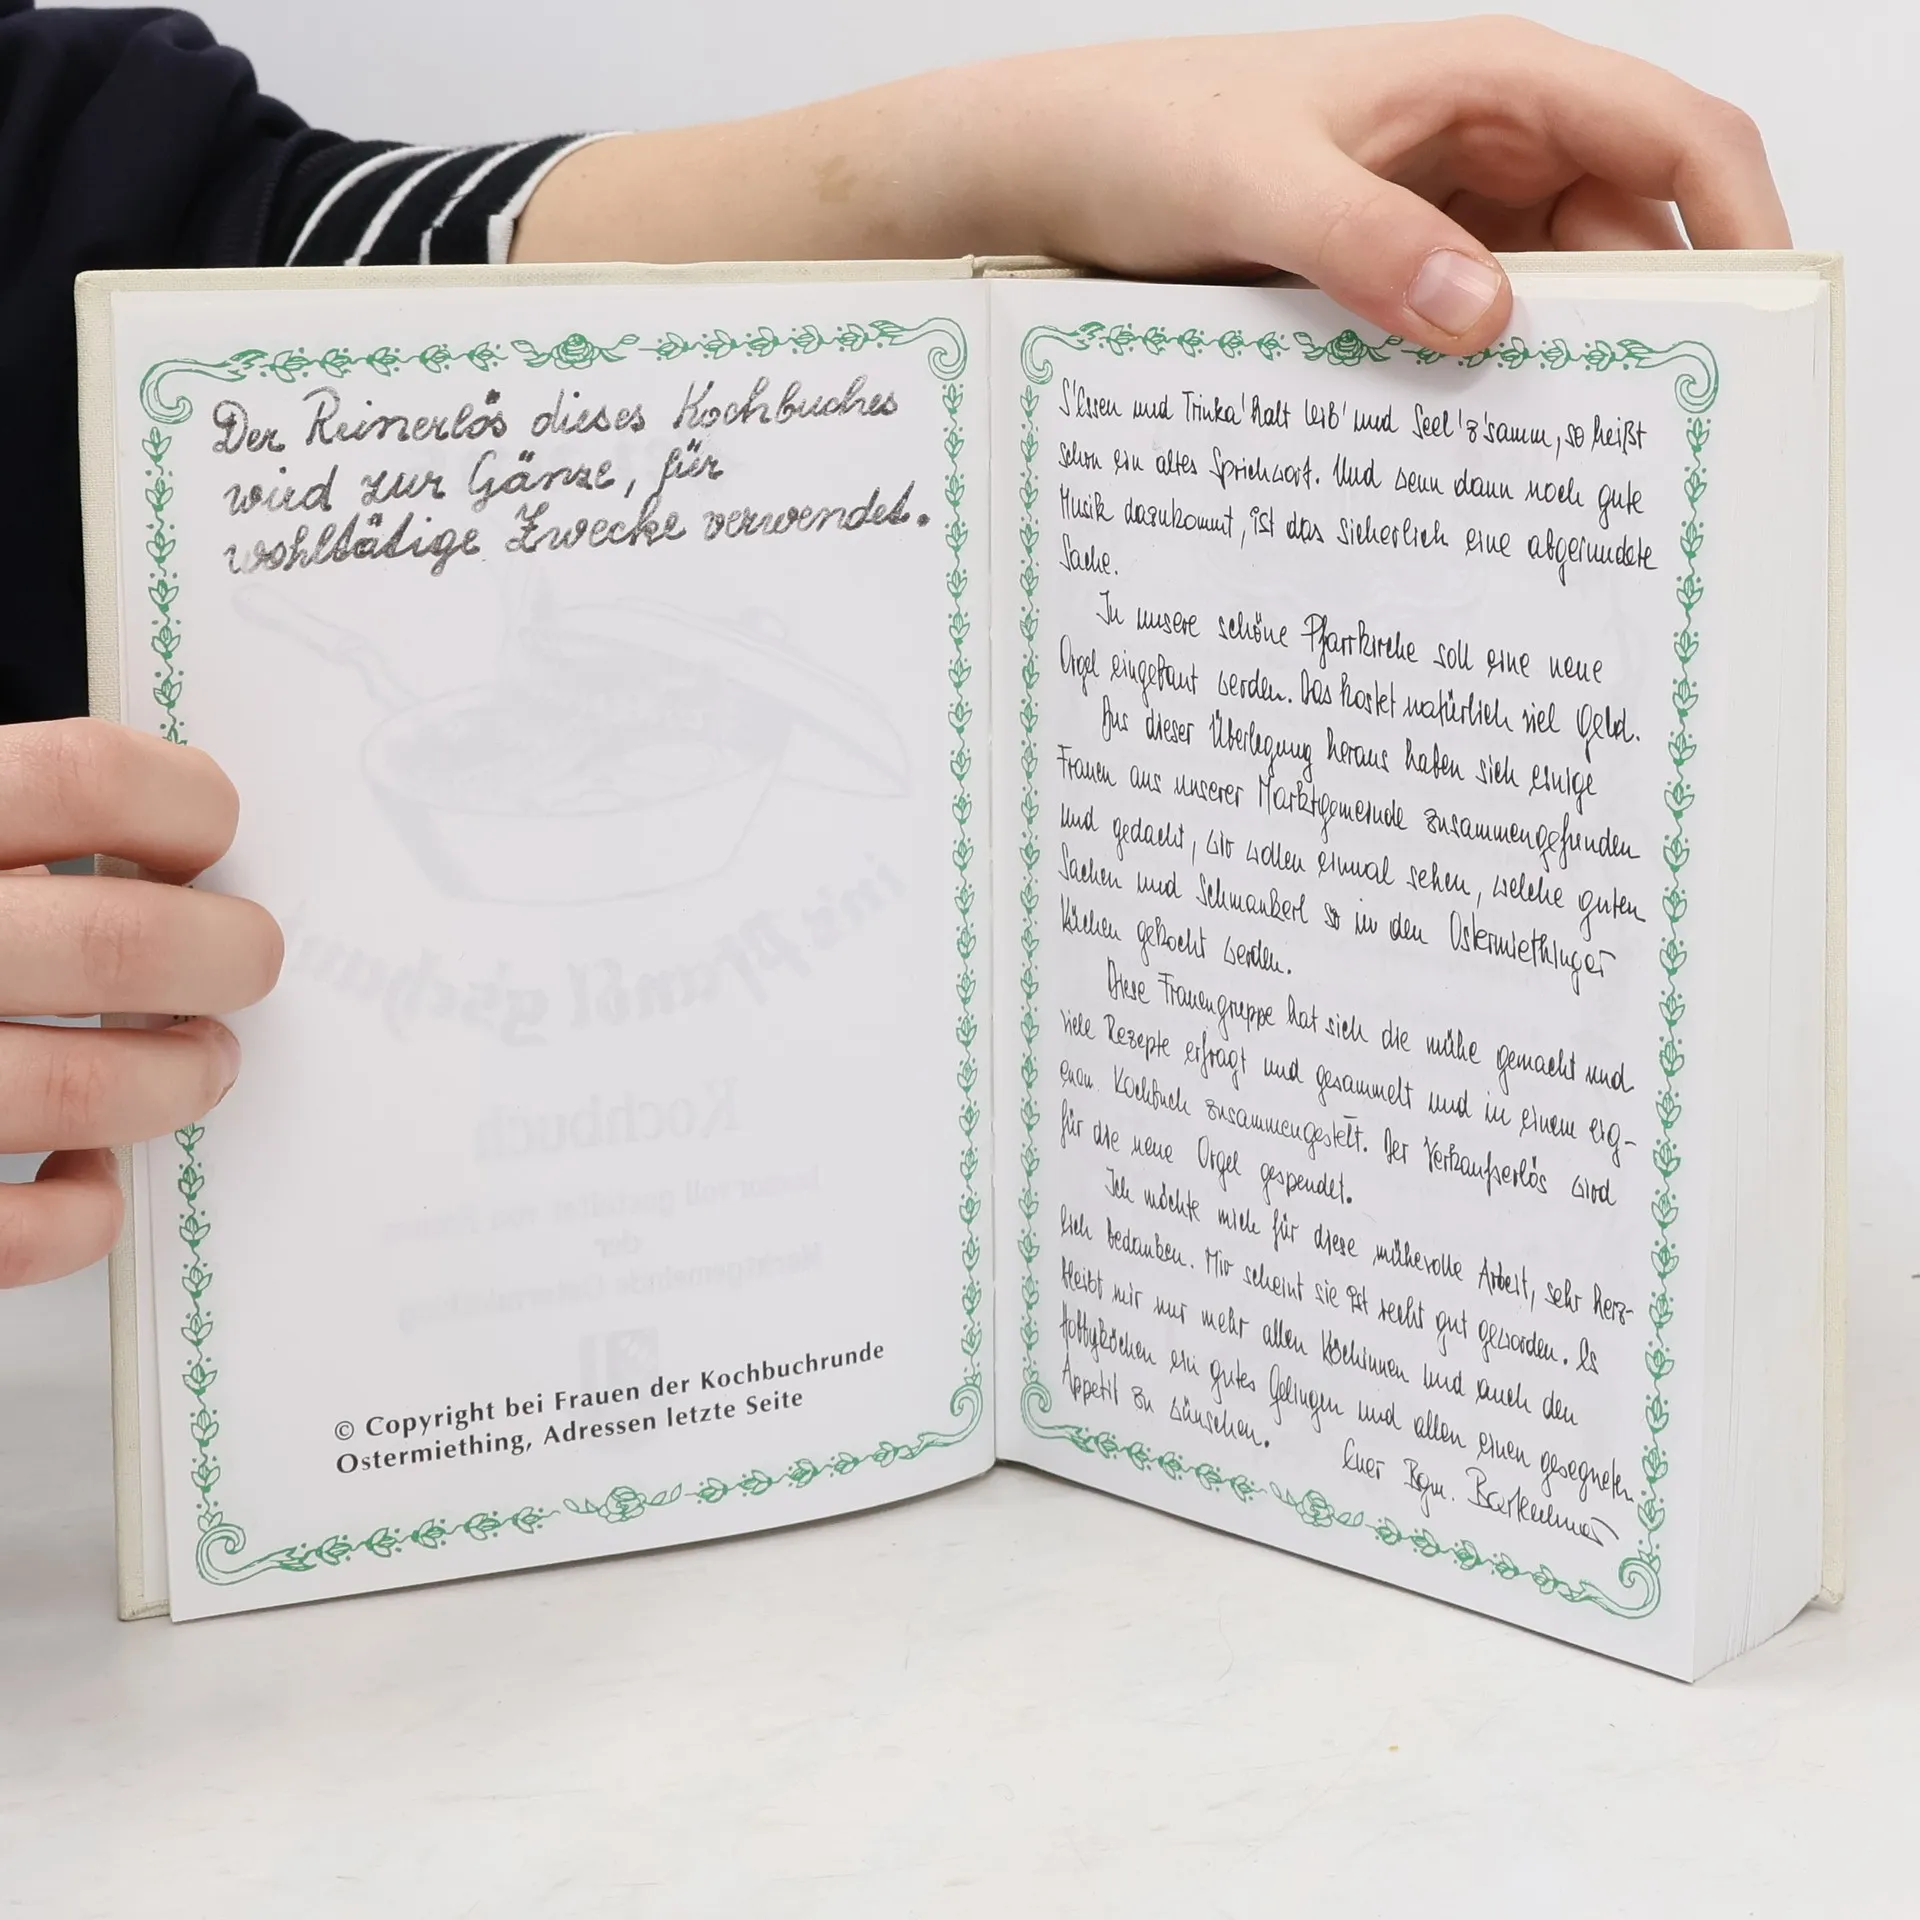 Der Reinerlös dieses Kochbuches
wird zur Gänze, für
wohltätige Zwecke verwendet.
© Copyright bei Frauen der Kochbuchrunde
Ostermiething, Adressen letzte Seite
S'Essen und Trinka' halt Leib' und Seel' z'samm, so heißt
schon ein altes Sprichwort. Und wenn dann noch gute
Musik dazukommt, ist das sicherlich eine abgerundete
Sache.
In unsere schöne Pfarrkirche soll eine neue
Orgel eingebaut werden. Das kostet natürlich viel Geld.
Aus dieser Überlegung heraus haben sich einige
Frauen aus unserer Marktgemeinde zusammengefunden
und gedacht, wir wollen einmal sehen, welche guten
Sachen und Schmankerl so in den Ostermiethinger
Küchen gekocht werden.
Diese Frauengruppe hat sich die mühe gemacht und
viele Rezepte erfragt und gesammelt und in einem eig-
enen Kochbuch zusammengestellt. Der Verkaufserlös wird
für die neue Orgel gespendet.
Ich möchte mich für diese mühevolle Arbeit, sehr herz-
lich bedanken. Mir scheint sie ist recht gut geworden. Es
bleibt mir nur mehr allen Köchinnen und auch den
Hobbyköchen ein gutes Gelingen und allen einen gesegneten
Appetit zu wünschen.
Euer Bgm.